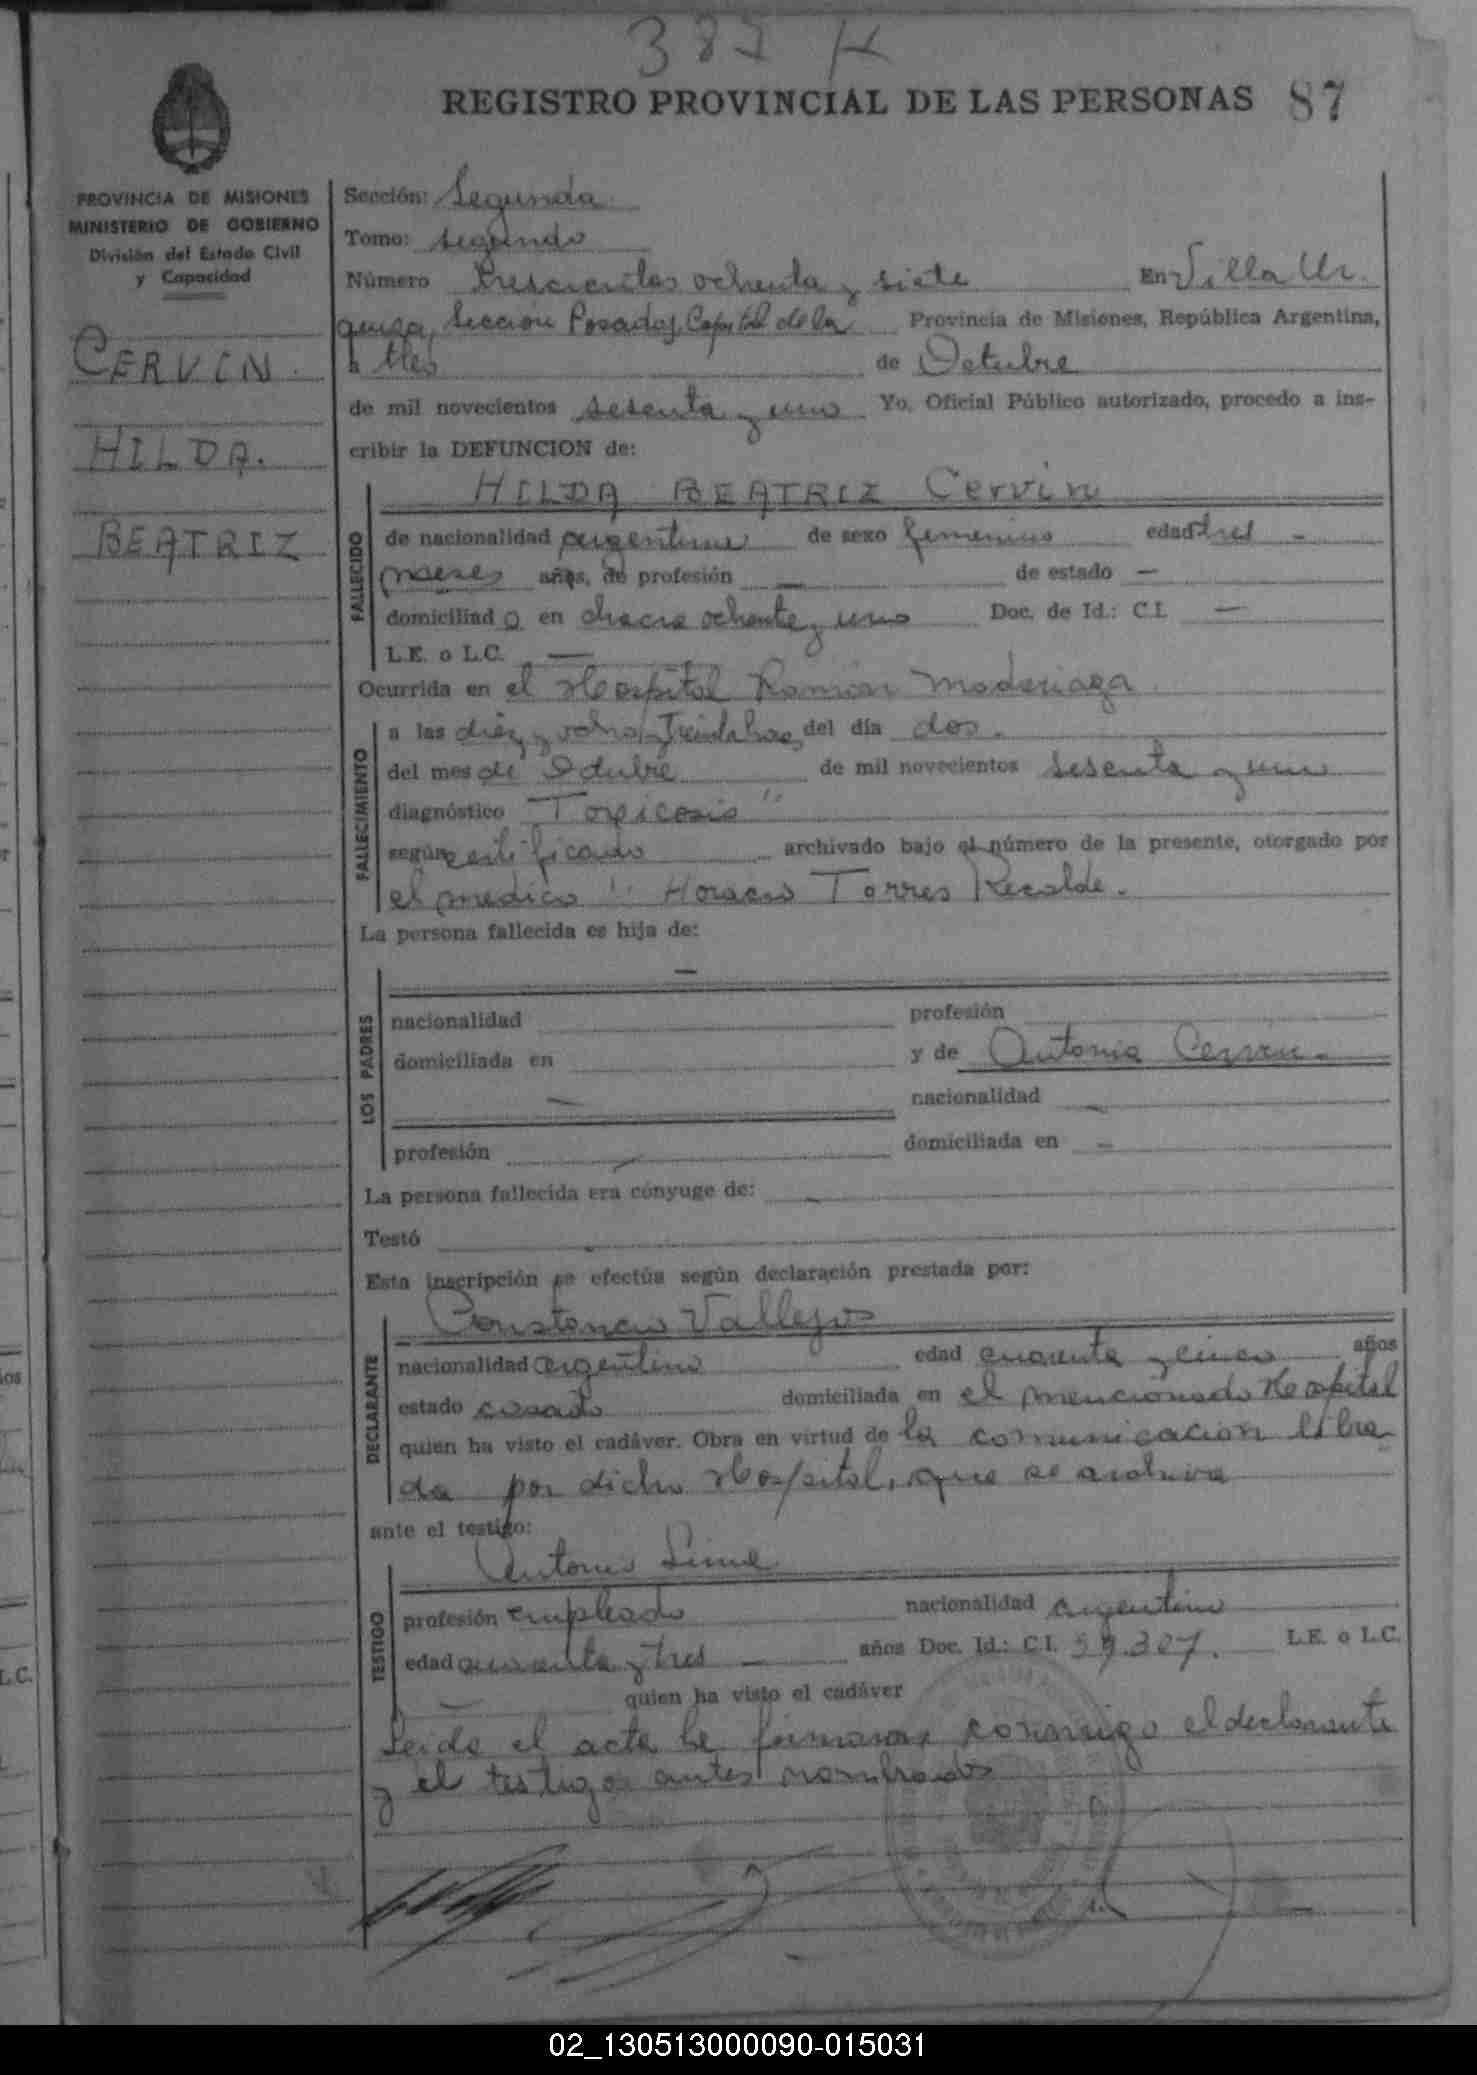 387 H
REGISTRO PROVINCIAL DE LAS PERSONAS 87
PROVINCIA DE MISIONES
MINISTERIO DE GOBIERNO
División del Estado Civil
y Capacidad
CERVIN.
HILDA.
BEATRIZ
Sección: Segunda
Tomo: segundo
Número Trescientos ochenta y siete En Villa Ur
quiza, Sección Posadas, Capital de la Provincia de Misiones, República Argentina,
a tres de Octubre
de mil novecientos sesenta y uno Yo, Oficial Público autorizado, procedo a ins-
cribir la DEFUNCION de:
HILDA BEATRIZ Cervin
FALLECIDO
de nacionalidad argentina de sexo femenino edad tres -
meses años, de profesión — de estado —
domiciliad o en chacra ochenta y uno Doc. de Id.: C.I. —
L.E. o L.C. —
Ocurrida en el Hospital Ramón Madariaga.
FALLECIMIENTO
a las diez y ocho y Treinta horas, del día dos.
del mes de Octubre de mil novecientos sesenta y uno
diagnóstico Toxicosis"
según certificado archivado bajo el número de la presente, otorgado por
el medico Horacio Torres Recalde.
La persona fallecida es hija de:
—
LOS PADRES
nacionalidad profesión
domiciliada en y de Antonia Cervin.
— nacionalidad —
profesión — domiciliada en —
La persona fallecida era cónyuge de: —
Testó -
Esta inscripción se efectúa según declaración prestada por:
Constancio Vallejos
DECLARANTE
nacionalidad argentino edad cuarenta y cinco años
estado casado domiciliada en el mencionado Hospital
quien ha visto el cadáver. Obra en virtud de la comunicación libra
da por dicho Hospital, que se archiva
ante el testigo:
Antonio
TESTIGO
profesión empleado nacionalidad argentino
edad cuarenta y tres — años Doc. Id.: C.I. 59.307. L.E. o L.C.
— quien ha visto el cadáver
Leida el acta la firmaron conmigo el declarante
y el testigo antes nombrados
02_130513000090-015031